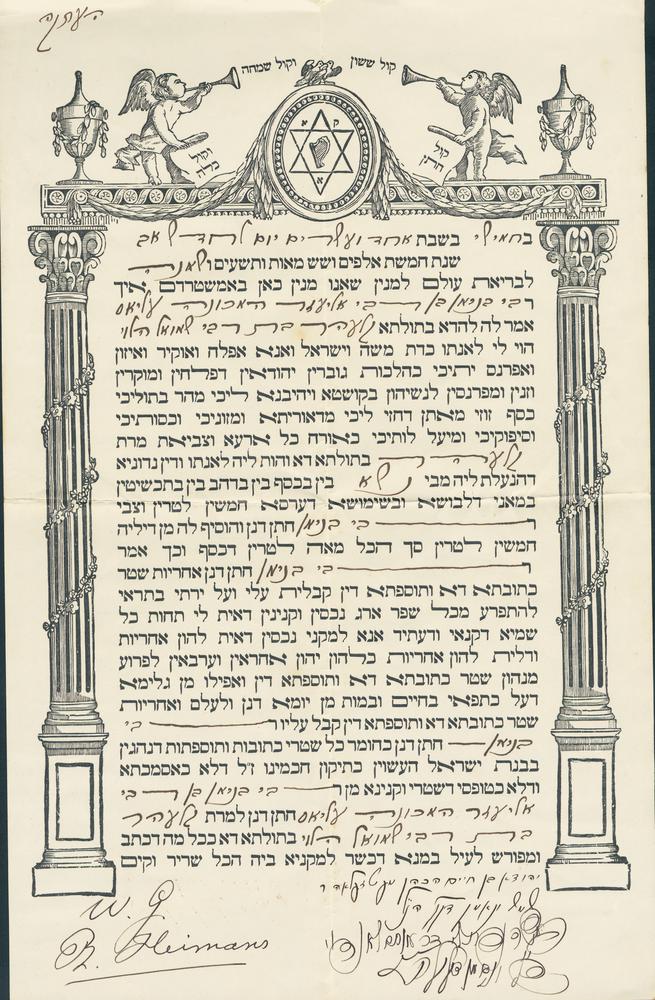 העתקה
קול ששון וקול שמחה
קול חתן וקול כלה
ק א
א
בחמישי בשבת אחד ועשרים יום לחדש אב
שנת חמשת אלפים ושש מאות ותשעים ושמנה
לבריאת עולם למנין שאנו מנין כאן באמשטרדם איך
רבי בנימן בן רבי אליעזר המכונה
אמר לה להדא בתולתא בת רבי שמואל הלוי
הוי לי לאנתו כדת משה וישראל ואנא אפלח ואוקיר ואיזון
ואפרנס יתיכי כהלכות גוברין יהודאין דפלחין ומוקרין
וזנין ומפרנסין לנשיהון בקושטא ויהיבנא ליכי מהר בתוליכי
כסף זוזי מאתן דחזי ליכי מדאוריתא ומזוניכי וכסותיכי
וסיפוקיכי ומיעל לותיכי כאורח כל ארעא וצביאת מרת
בתולתא דא והות ליה לאנתו ודין נדוניא
דהנעלת ליה מבי נשא בין בכסף בין בדהב בין בתכשיטין
במאני דלבושא ובשימושא דערסא חמשין לטרין וצבי
רבי בנימן חתן דנן והוסיף לה מן דיליה
חמשין לטרין סך הכל מאה לטרין דכסף וכך אמר
רבי בנימן חתן דנן אחריות שטר
כתובתא דא ותוספתא דין קבלית עלי ועל ירתי בתראי
להתפרע מכל שפר ארג נכסין וקנינין דאית לי תחות כל
שמיא דקנאי ודעתיד אנא למקני נכסין דאית להון אחריות
ודלית להון אחריות כלהון יהון אחראין וערבאין לפרוע
מנהון שטר כתובתא דא ותוספתא דין ואפילו מן גלימא
דעל כתפאי בחיים ובמות מן יומא דנן ולעלם ואחריות
שטר כתובתא דא ותוספתא דין קבל עליו רבי
בנימן חתן דנן כחומר כל שטרי כתובות ותוספתות דנהגין
בבנת ישראל העשוין כתיקון חכמינו ז״ל דלא כאסמכתא
ודלא כטופסי דשטרי וקנינא מן רבי בנימן בן רבי
אליעזר המכונה חתן דנן למרת
בת רבי שמואל הלוי בתולתא דא ככל מה דכתב
ומפורש לעיל במנא דכשר למקניא ביה הכל שריר וקים
יהודא בן חיים הכהן
W. G.
B. Heimans